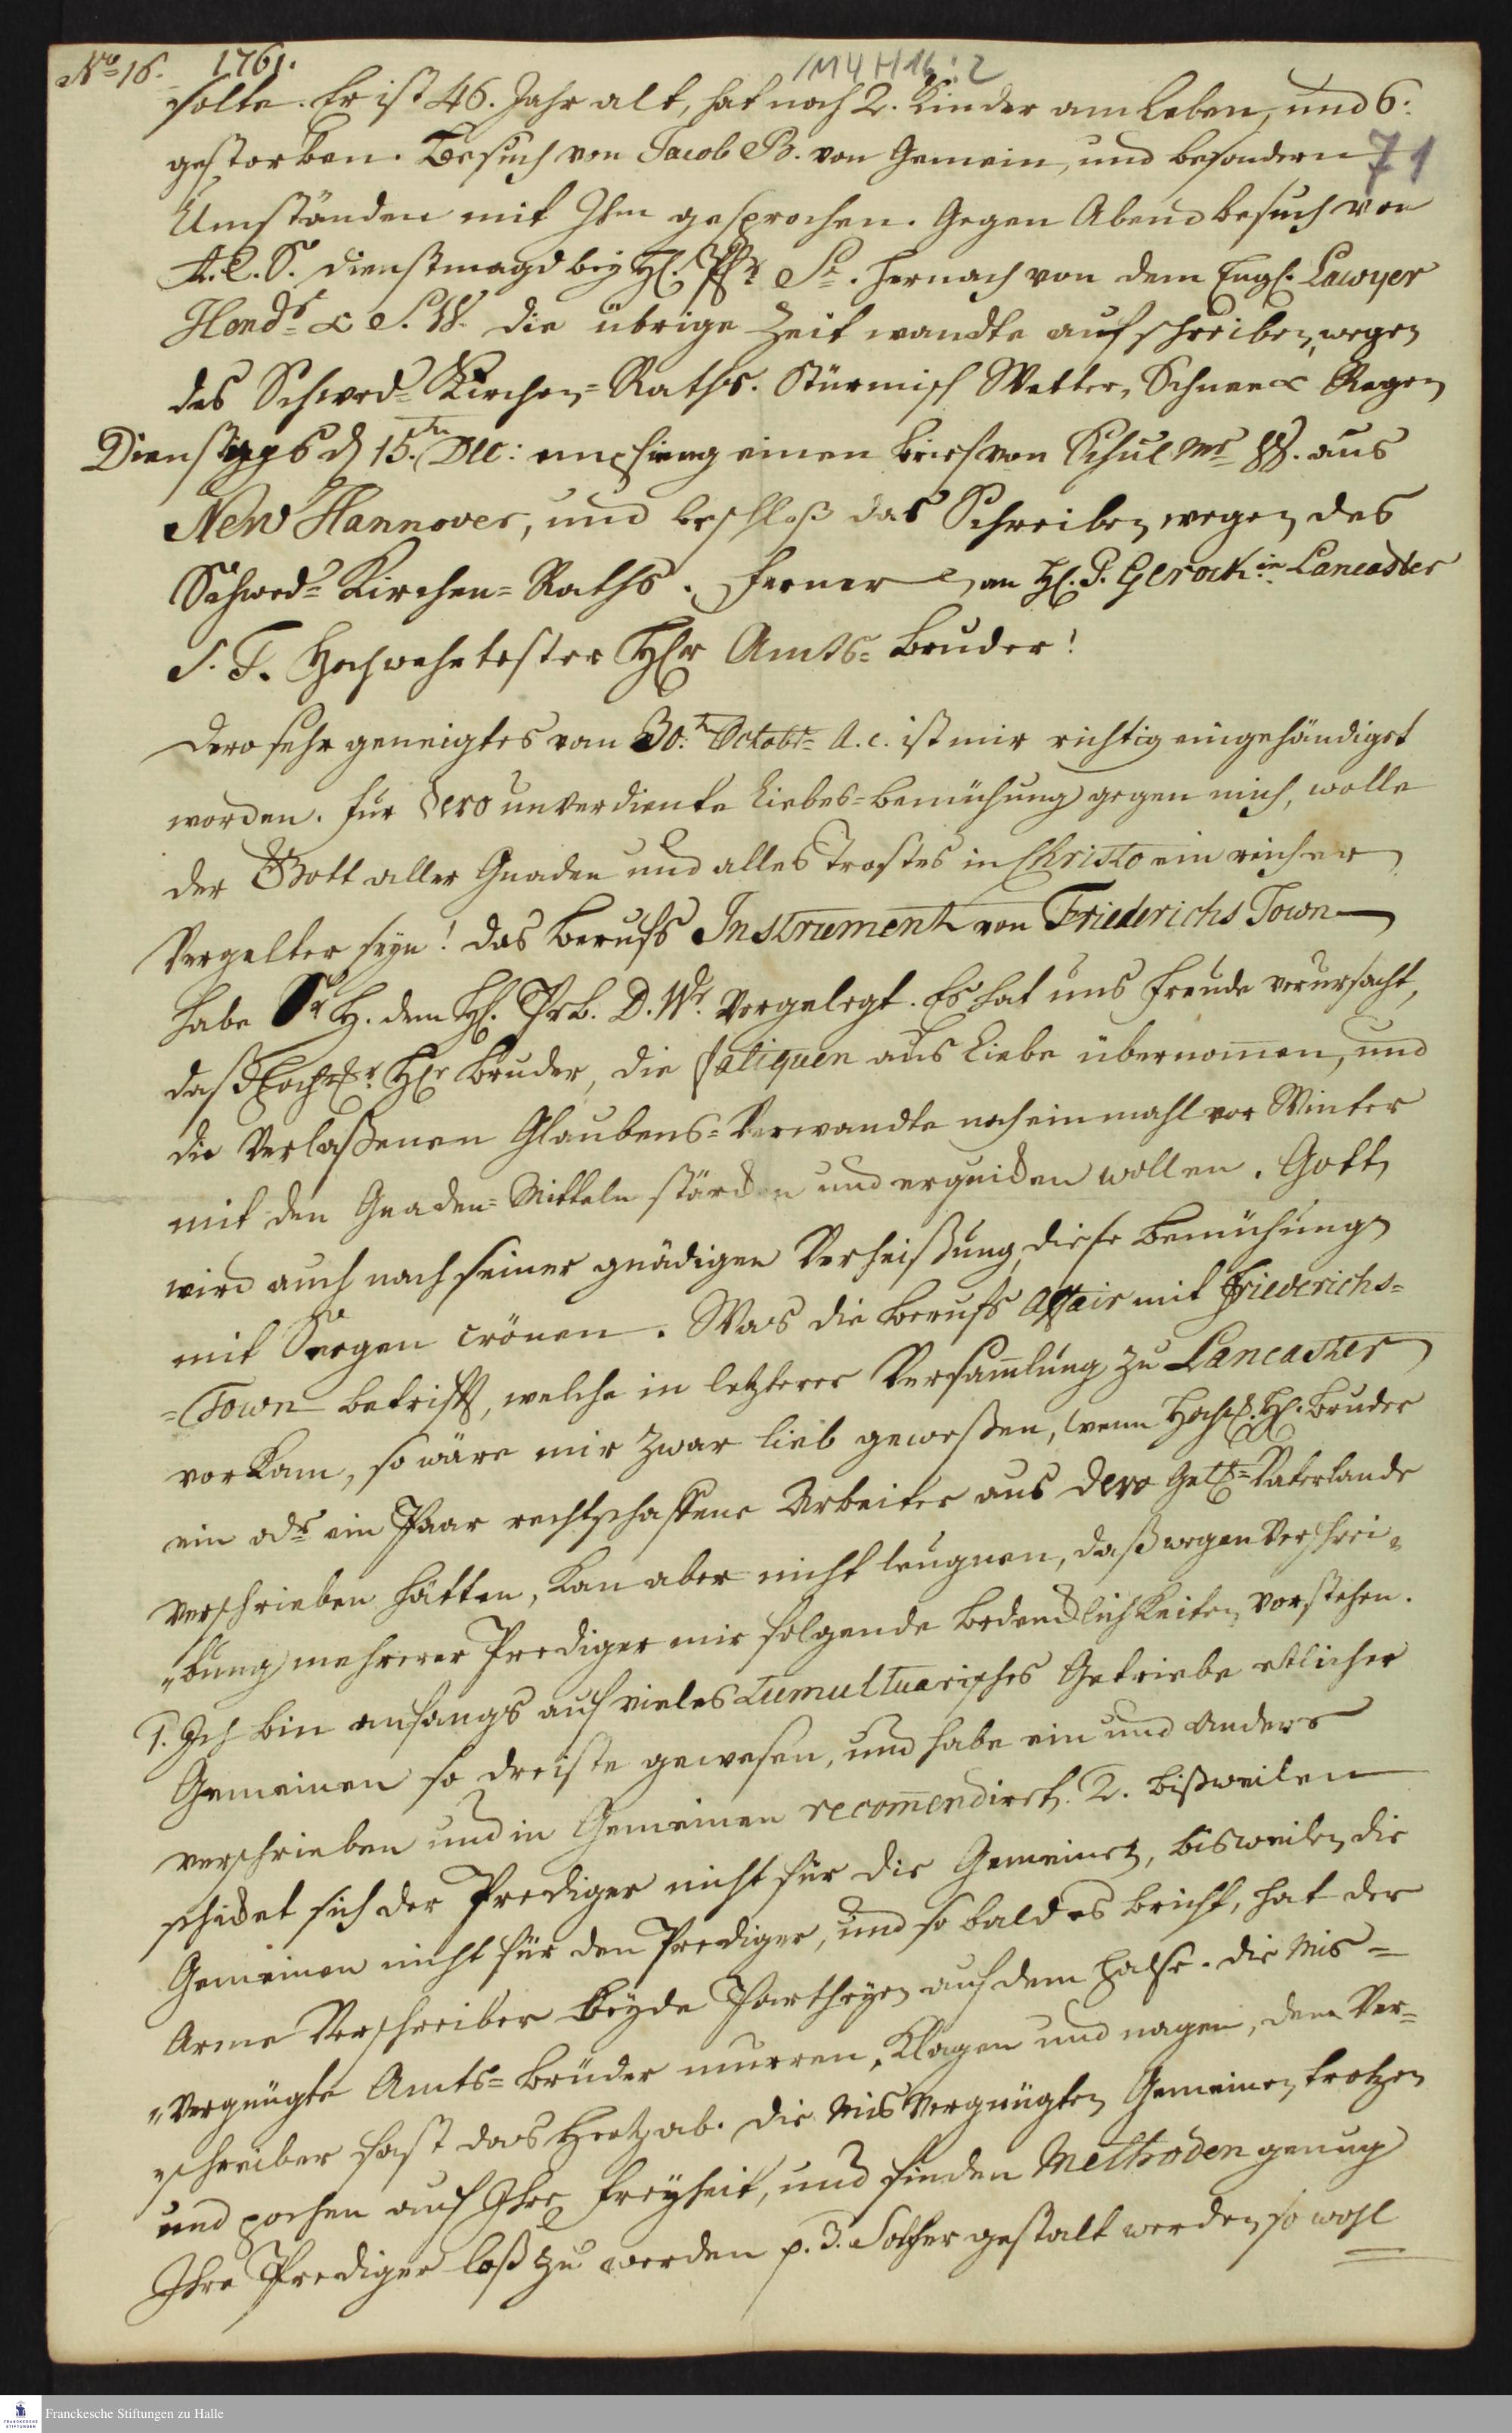 No 16. 1761.
/M4 H16:2
solte. Er ist 46. Jahr alt, hat noch 2. Kinder am Leben, und 6:
gestorben. Besuch von Jacob B. von Gemein, und besondern
71
Umständen mit Ihm gesprochen. Gegen Abend besuch von
A. C. S. dienstmagd bey H. Pfr St. hernach von dem Engl. Lawyer
Hends & S. W. die übrige Zeit wandte auf schreiben, wegen
des Schwed= Kirchen=Raths. Stürmisch Wetter, Schnee & Regen
Dienstags d 15.ten Dec: empfieng einen brief von Schul Mr W. aus
New Hannover, und beschloß das Schreiben wegen des
Schwed= Kirchen=Raths. ferner an H. P. Gerock in Lancaster
S. T. Hochwehrtester Herr Amts=bruder!
dero sehr geneigtes vom 30.ten Octobr= a. c. ist mir richtig eingehändiget
worden. für dero unverdiente Liebes=bemühung gegen mich, wolle
der Gott aller Gnaden und alles Trostes in Christo ein reicher
Vergelter seyn! das Berufs Instrument von Friederichs Town
habe Sr H. dem H. Prb. D. Wr. vorgelegt. Es hat uns freude verursacht,
daß Hochgl. Herr bruder, die fatiquen aus Liebe übernomen, und
die Verlaßenen Glaubens=Verwandte noch einmahl vor Winter
mit den Gnaden=Mitteln stärcken und erquicken wollen. Gott
wird auch nach seiner gnädigen Verheißung, diese bemühung
mit Seegen crönen. Was die berufs Affair mit Friederichs=
=Town betrifft, welche in letzterer Versamlung zu Lancaster
vorkam, so wäre mir zwar lieb geweßen, wenn Hochgl. H. bruder
ein odr ein Paar rechtschaffene Arbeiter aus dero Vaterlande
verschrieben hätten, kan aber nicht leugnen, daß wegen Verschrei„
„bung mehrerer Prediger mir folgende bedencklichkeiten vorstehen.
1. Ich bin anfangs auf vieles tumultuarisches Getriebe etlicher
Gemeinen so dreiste gewesen, und habe ein und anders
verschrieben und in Gemeinen recomendirt. 2. bißweilen
schicket sich der Prediger nicht für die Gemeinen, bisweilen die
Gemeinen nicht für den Prediger, und so bald es bricht, hat der
Arme Verschreiber beyde Partheyen auf dem Halse. die Mis=
„vergnügte Amts=brüder murren, klagen und nagen, dem Ver=
„schreiber fast das Hertz ab. die Misvergnügten Gemeinen trotzen
und pochen auf Ihre freyheit, und finden Methoden genug
Ihre Prediger loß zu werden p. 3. Solcher gestalt werden so wohl
Franckesche Stiftungen zu Halle